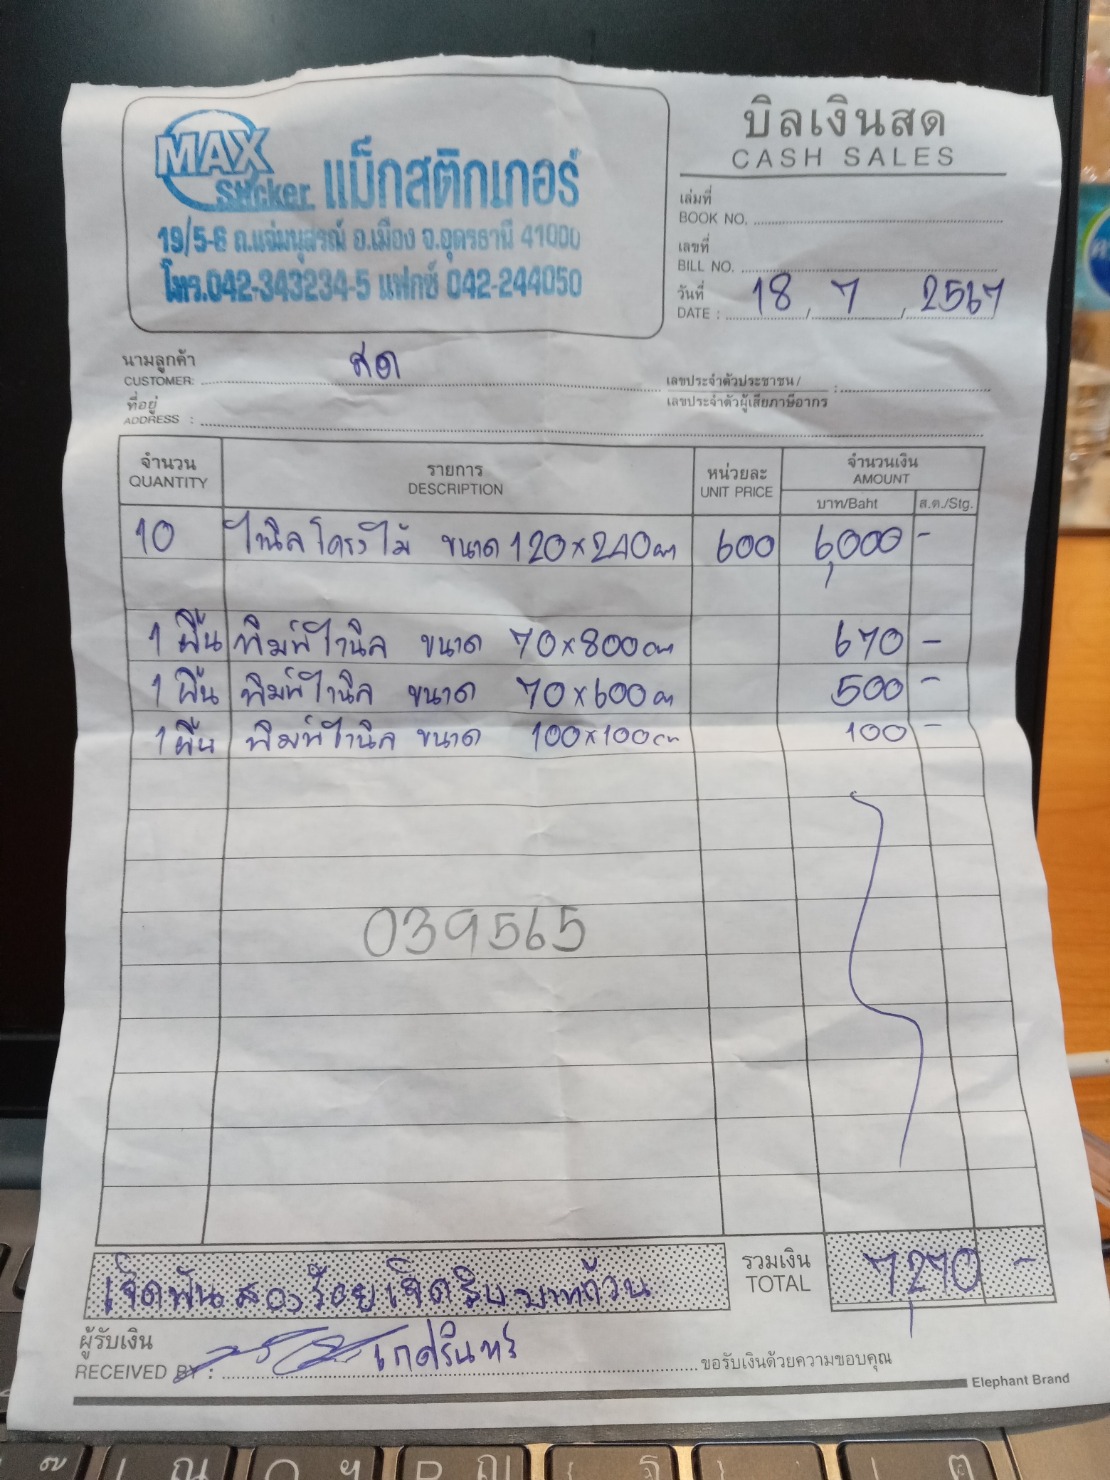 MAX
Sticker แม็กสติกเกอร์
19/5-6 ถ.แจ่มนุสรณ์ อ.เมือง จ.อุดรธานี 41000
โทร.042-343234-5 แฟกซ์ 042-244050
บิลเงินสด
CASH SALES
เล่มที่
BOOK NO.
เลขที่
BILL NO.
วันที่
DATE : 18 / 7 / 2567
นามลูกค้า
CUSTOMER: สด
เลขประจำตัวประชาชน / :
เลขประจำตัวผู้เสียภาษีอากร
ที่อยู่
ADDRESS :
จำนวน รายการ หน่วยละ จำนวนเงิน
QUANTITY DESCRIPTION UNIT PRICE AMOUNT
บาท/Baht ส.ต./Stg.
10 ไวนิลโครงไม้ ขนาด 120x240cm 600 6,000 -
1 ผืน พิมพ์ไวนิล ขนาด 70x800cm 670 -
1 ผืน พิมพ์ไวนิล ขนาด 70x600cm 500 -
1 ผืน พิมพ์ไวนิล ขนาด 100x100cm 100 -
039565
เจ็ดพันสองร้อยเจ็ดสิบบาทถ้วน
รวมเงิน
TOTAL 7,270 -
ผู้รับเงิน
RECEIVED BY : เกศรินทร์ ขอรับเงินด้วยความขอบคุณ
Elephant Brand